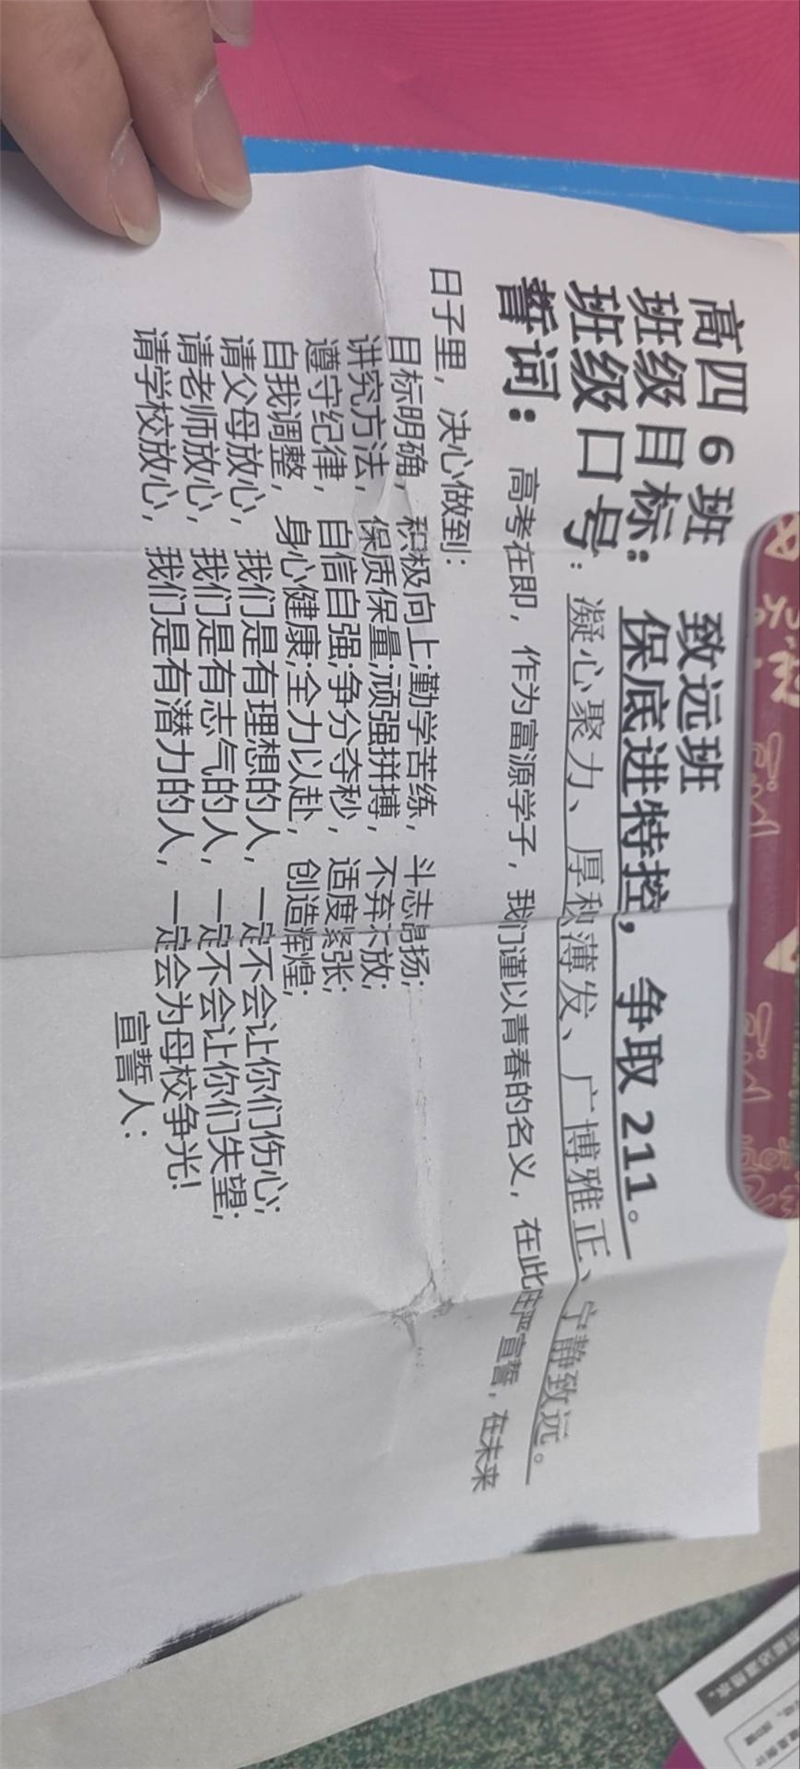 高四 6 班 致远班
班级目标：保底进特控，争取 211。
班级口号：凝心聚力、厚积薄发、广博雅正、宁静致远。
誓词：高考在即，作为富源学子，我们谨以青春的名义，在此庄严宣誓，在未来
日子里，决心做到：
目标明确，积极向上;勤学苦练，斗志昂扬;
讲究方法，保质保量;顽强拼搏，不弃不放;
遵守纪律，自信自强;争分夺秒，适度紧张;
自我调整，身心健康;全力以赴，创造辉煌;
请父母放心，我们是有理想的人，一定不会让你们伤心;
请老师放心，我们是有志气的人，一定不会让你们失望;
请学校放心，我们是有潜力的人，一定会为母校争光!
宣誓人：